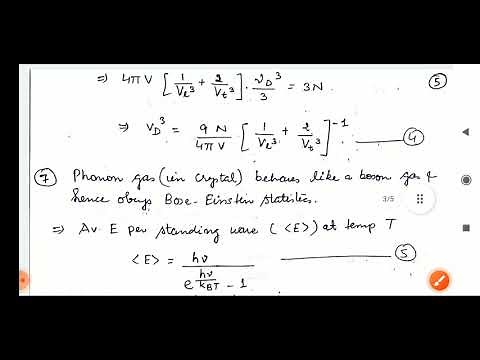 ⇒ 4πV [ 1/V_l³ + 2/V_t³ ] · ν_D³/3 = 3N
5
⇒ ν_D³ = 9N/4πV [ 1/V_l³ + 2/V_t³ ]⁻¹ —— ④
⑦ Phonon gas (in crystal) behaves like a boson gas &
hence obeys Bose-Einstein statistics.
3/5
⇒ Av. E per standing wave (<E>) at temp T
<E> = hν / (e^(hν/k_BT) - 1) —— ⑤